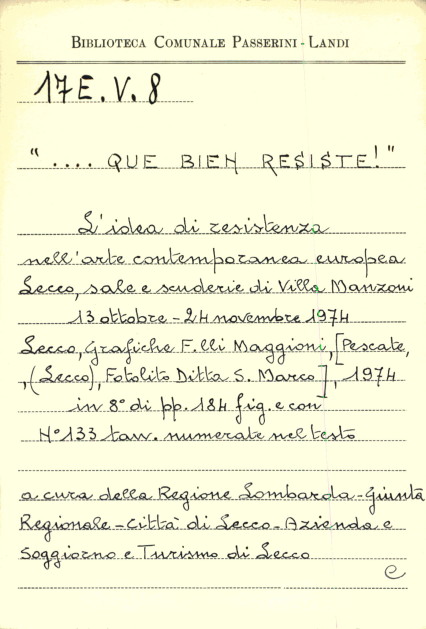 BIBLIOTECA COMUNALE PASSERINI - LANDI
17 E. V. 8
".... QUE BIEN RESISTE!"
L'idea di resistenza
nell'arte contemporanea europea
Lecco, sale e scuderie di Villa Manzoni
13 ottobre - 24 novembre 1974
Lecco, Grafiche F.lli Maggioni, [Pescate,
,(Lecco), Fotolito Ditta S. Marco], 1974
in 8° di pp. 184 fig. e con
N° 133 tavv. numerate nel testo
a cura della Regione Lombarda - Giunta
Regionale - Città di Lecco - Azienda e
Soggiorno e Turismo di Lecco
e